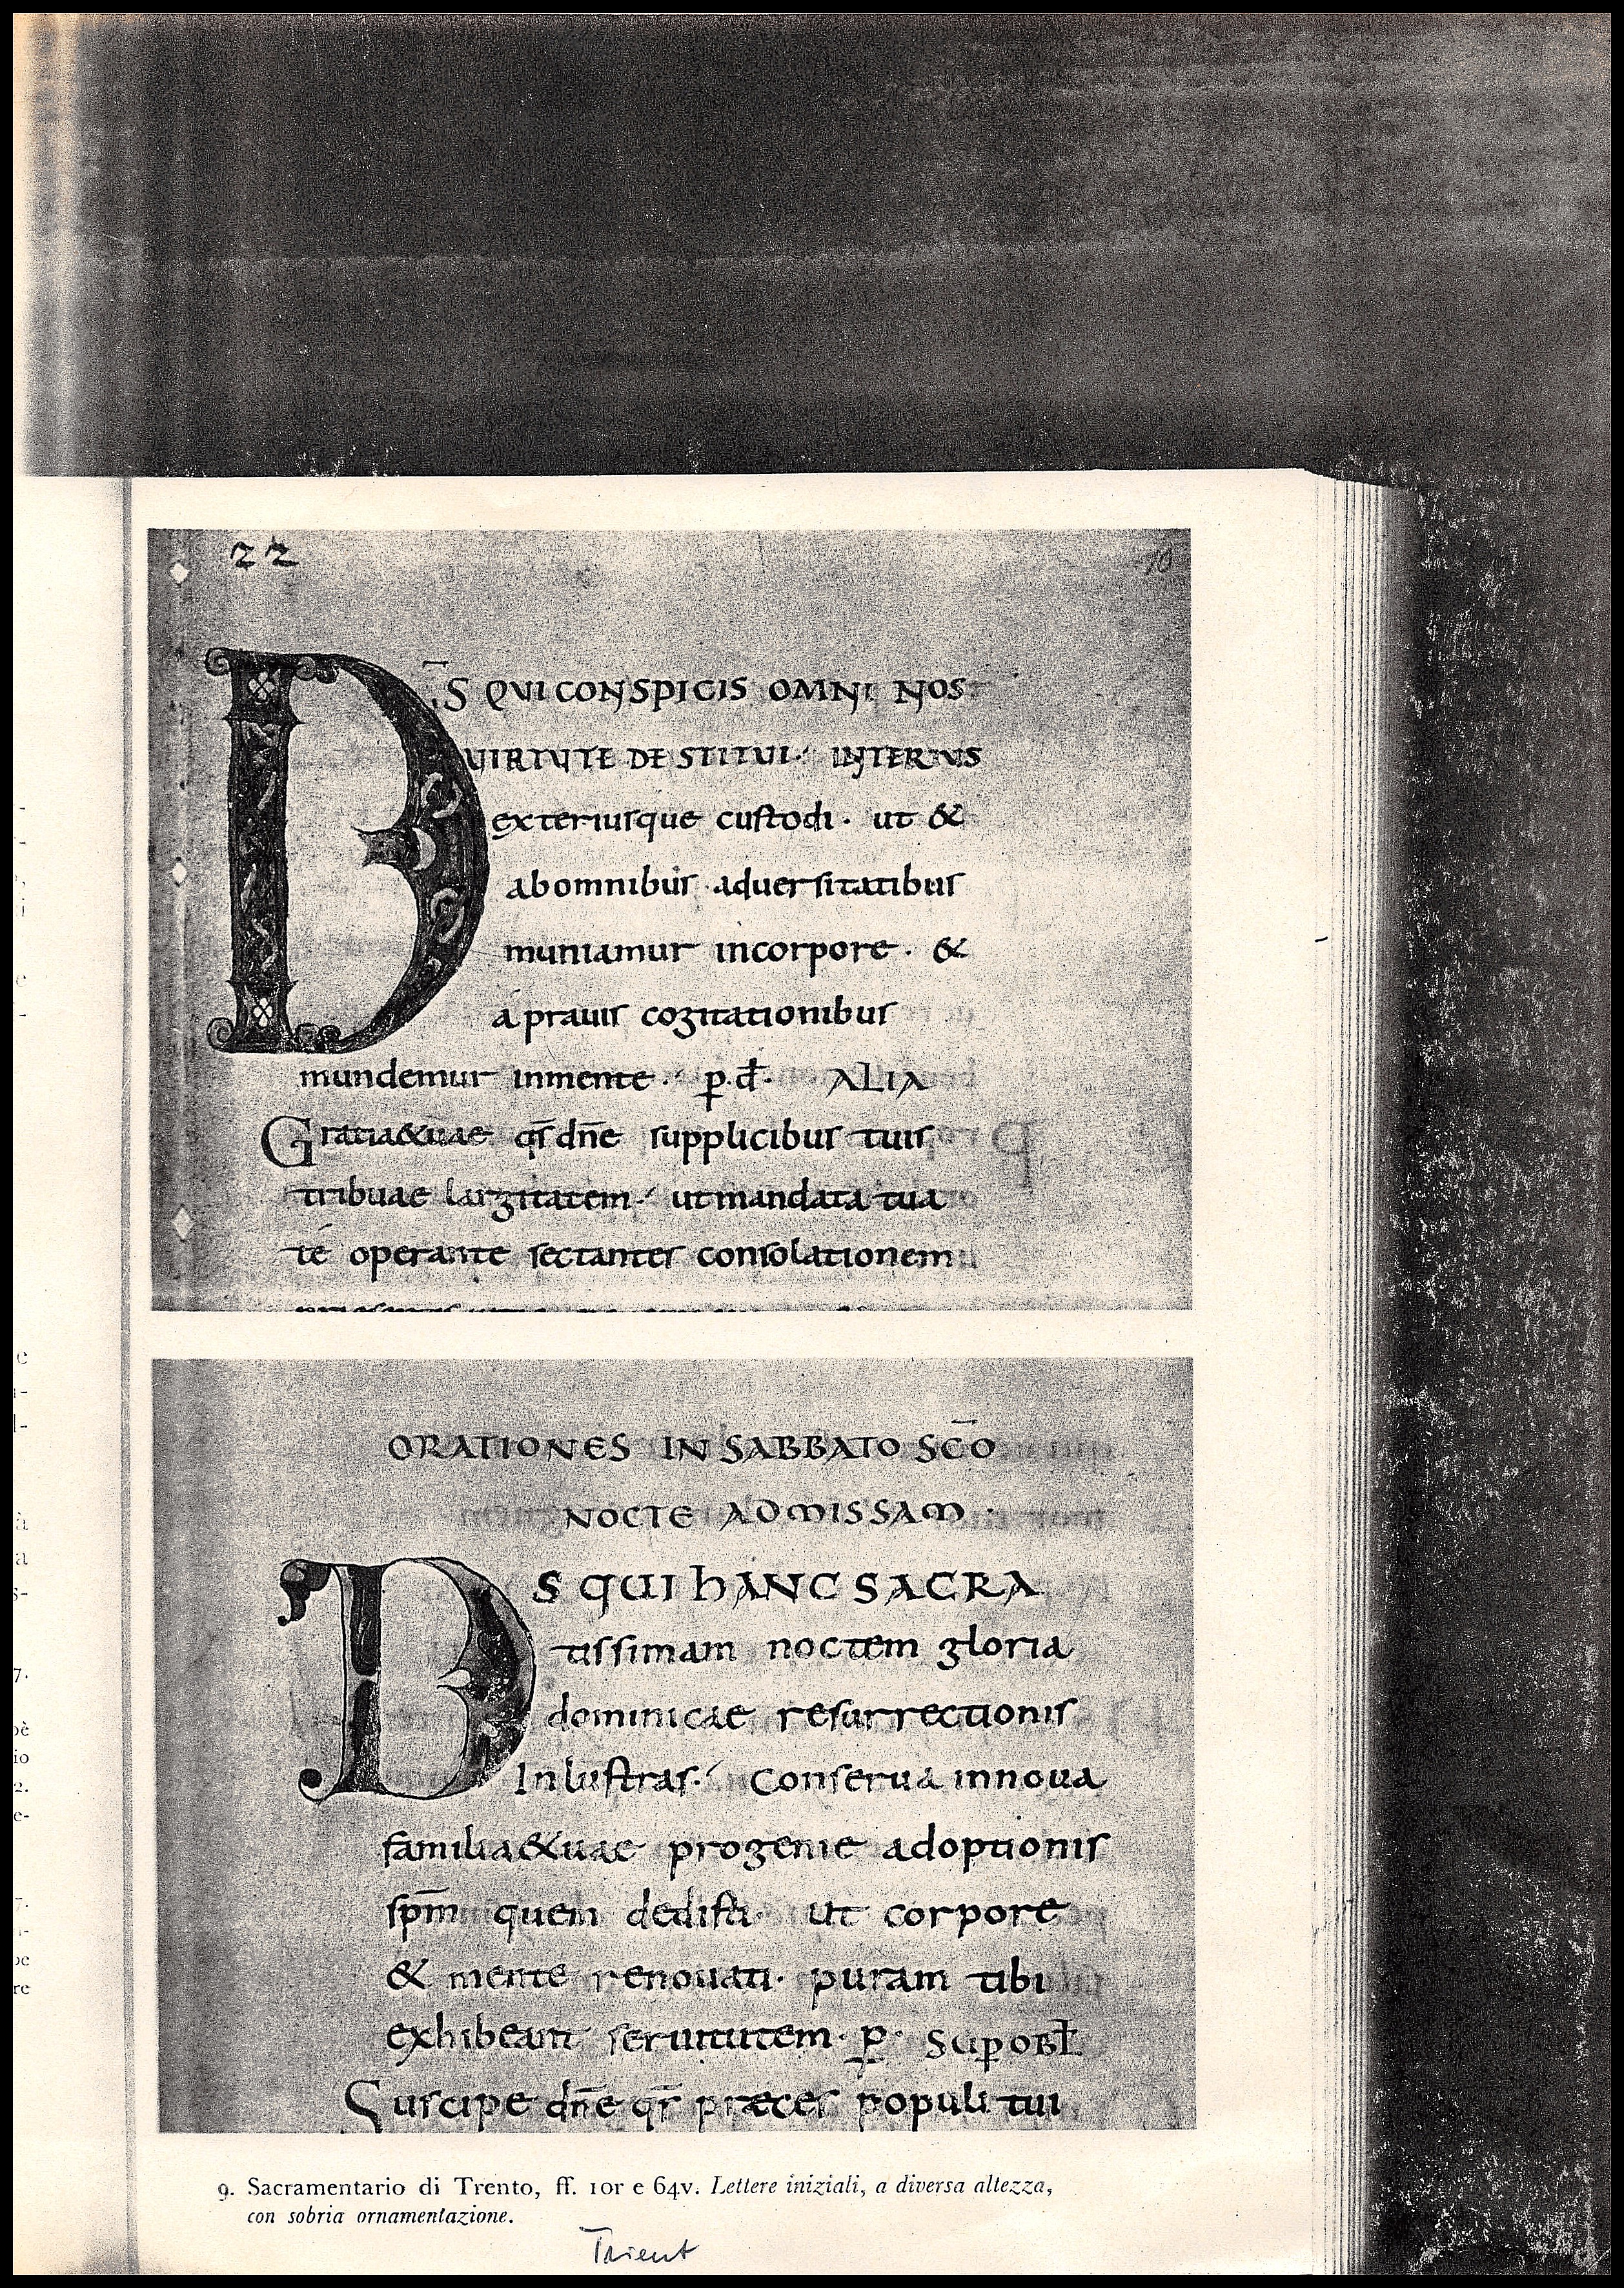 22
10
D̅S QVI CONSPICIS OMNI NOS
VIRTVTE DESTITUI· INTERIUS
exteriusque custodi· ut &
abomnibus aduersitatibus
muniamur incorpore· &
á prauis cogitationibus
mundemur inmente· p.d̄· ALIA
Gratia&uae qs̄ dn̄e supplicibus tuis
tribuae largitatem· ut mandata tua
té operante sectantes consolationem
ORATIONES IN SABBATO SC̄O
NOCTE AD MISSAM·
DS QUI hANC SACRA
tissimam noctem gloria
dominicae resurrectionis
Inlustras· Conserua innoua
familia&uae progenie adoptionis
sp̄m quem dedisti· ut corpore
& mente renouati· puram tibi
exhibeant seruitutem· p̱· SUP̱ OBL̄
Suscipe dn̄e qs̄ praeces populi tui
9. Sacramentario di Trento, ff. 10r e 64v. Lettere iniziali, a diversa altezza,
con sobria ornamentazione.
Trient